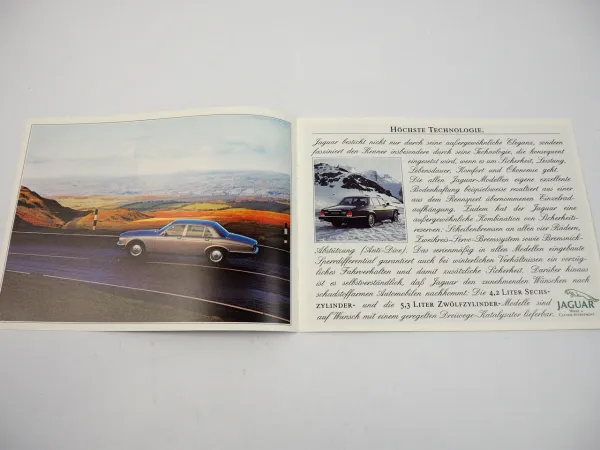 HÖCHSTE TECHNOLOGIE.
Jaguar besticht nicht nur durch seine außergewöhnliche Eleganz, sondern
fasziniert den Kenner insbesondere durch seine Technologie, die konsequent
eingesetzt wird, wenn es um Sicherheit, Leistung,
Lebensdauer, Komfort und Ökonomie geht.
Die allen Jaguar-Modellen eigene exzellente
Bodenhaftung beispielsweise resultiert aus einer
aus dem Rennsport übernommenen Einzelrad-
aufhängung. Zudem hat der Jaguar eine
außergewöhnliche Kombination von Sicherheits-
reserven: Scheibenbremsen an allen vier Rädern,
Zweikreis-Servo-Bremssystem sowie Bremsnick-
Abstützung (Anti-Dive). Das serienmäßig in allen Modellen eingebaute
Sperrdifferential garantiert auch bei winterlichen Verhältnissen ein vorzüg-
liches Fahrverhalten und damit zusätzliche Sicherheit. Darüber hinaus
ist es selbstverständlich, daß Jaguar den zunehmenden Wünschen nach
schadstoffarmen Automobilen nachkommt: Die 4,2 LITER SECHS-
ZYLINDER- und die 5,3 LITER ZWÖLFZYLINDER-Modelle sind
auf Wunsch mit einem geregelten Dreiwege-Katalysator lieferbar.
JAGUAR